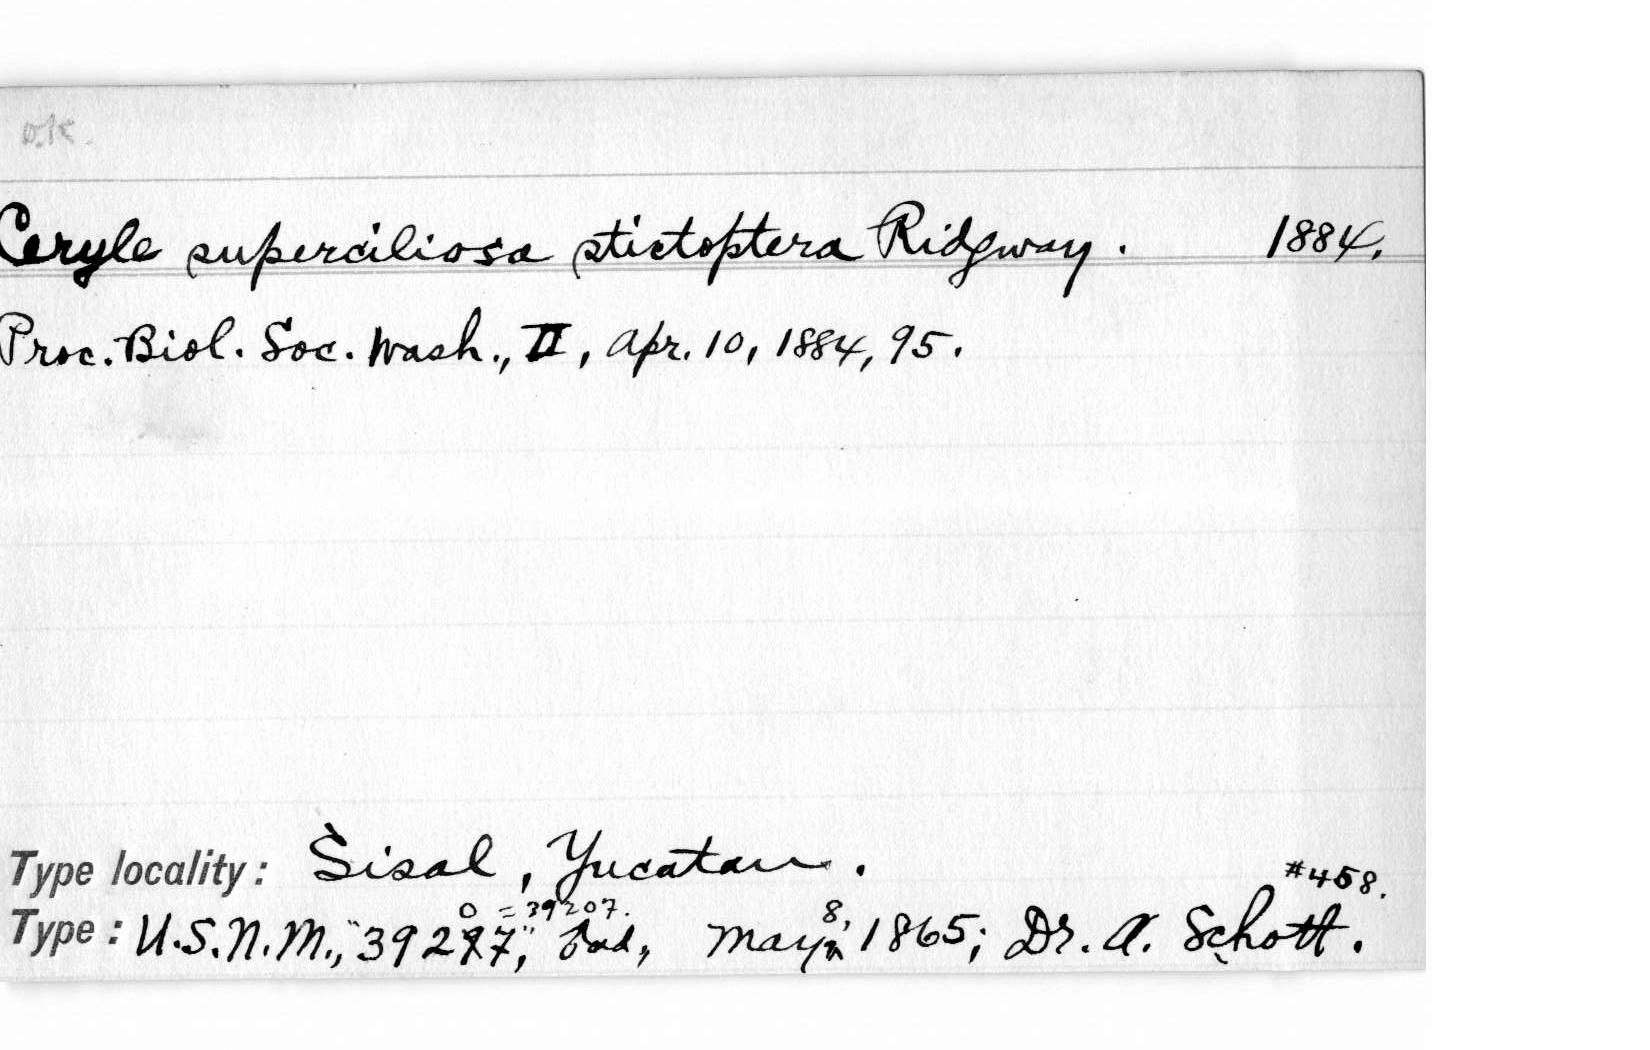 O.K.
Ceryle superciliosa stictoptera Ridgway. 1884.
Proc. Biol. Soc. Wash., II, Apr. 10, 1884, 95.
Type locality: Sisal, Yucatan.
#458.
0 = 39207. 8,
Type: U.S.N.M., "39297," ad., May, 1865; Dr. A. Schott.